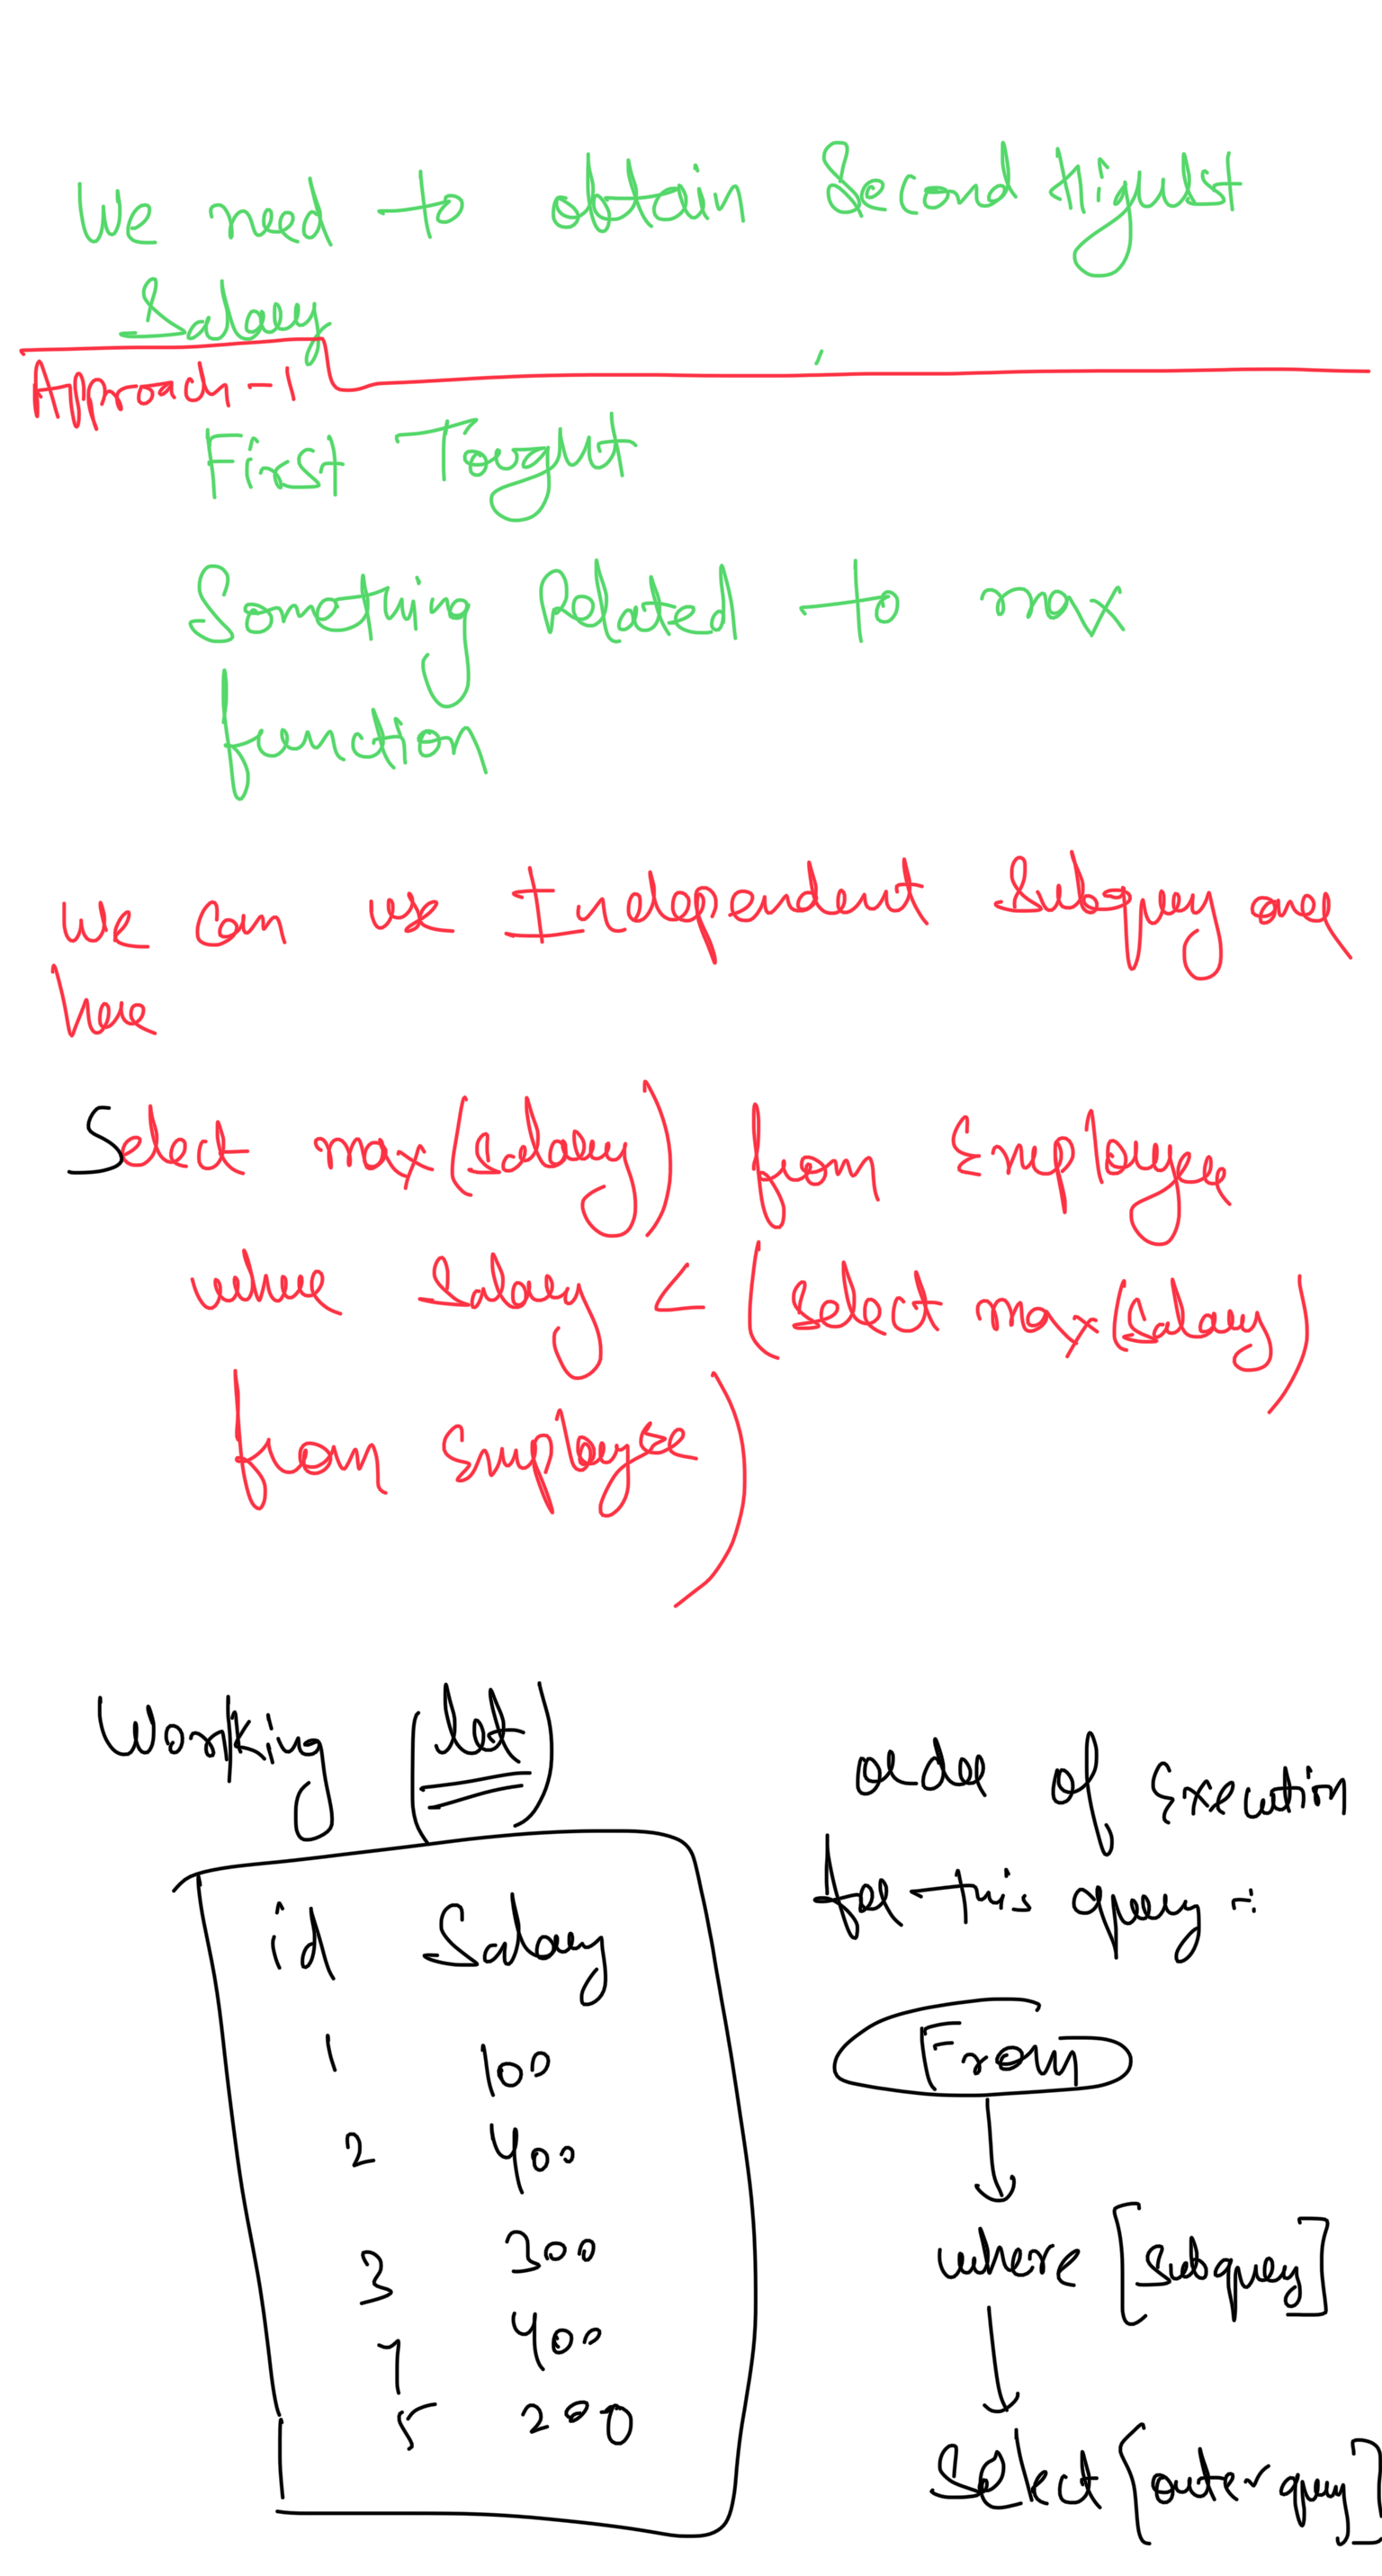 We need to obtain Second Highest
Salary
Approach-1
First Tought
Something Related to max
function
We can use Independent Subquery one
here
Select max(Salary) from Employee
where Salary < (Select max(Salary)
from Employee)
Working (let)
id Salary
1 100
2 400
3 300
4 400
5 200
order of Execution
for this query :-
From
where [Subquery]
Select [outer query]